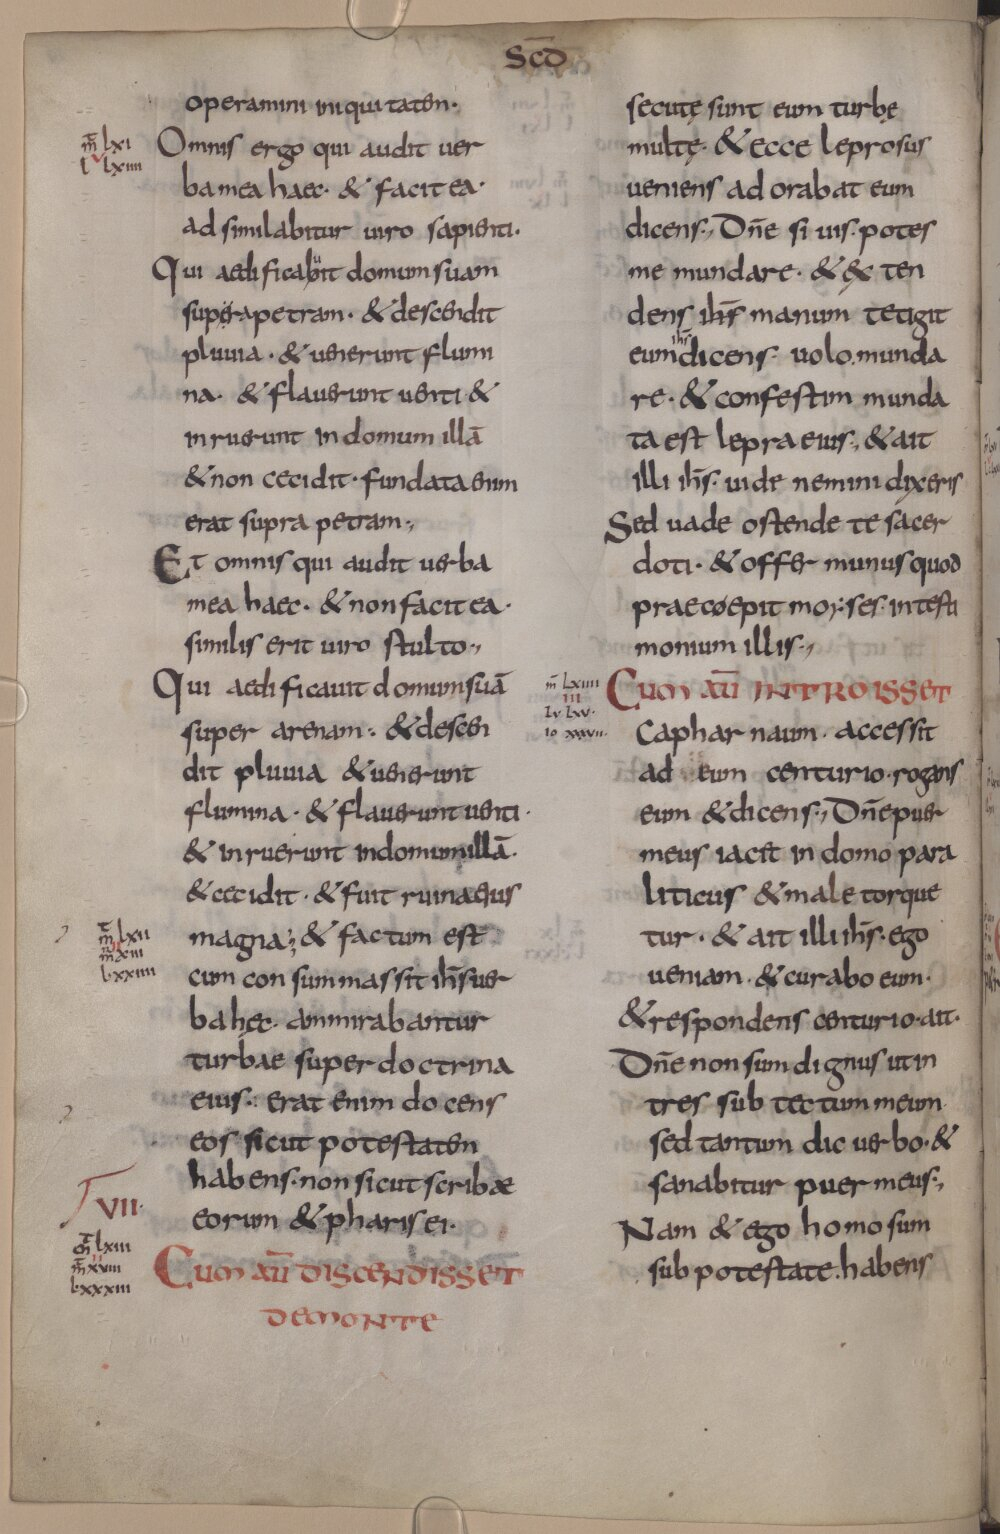 Scd̄
operamini iniquitatem·
m̄ lxi
l lxiiii
Omnis ergo qui audit uer
ba mea haec· & facit ea·
ad similabitur uiro sapienti·
Qui aedificabit domum suam
supra petram· & descendit
pluuia· & uenerunt flumi
na· & flauerunt uenti &
inruerunt in domum illā
& non cecidit· fundata enim
erat supra petram·,
Et omnis qui audit uerba
mea haec· & non facit ea·
similis erit uiro stulto·,
Qui aedificauit domum suā
super arenam: & descen
dit pluuia & uenerunt
flumina· & flauerunt uenti·
& inruerunt in domum illā·
& cecidit· & fuit ruina eius
m̄ lxii
m̄ xiii
l xxiiii
magna; & factum est
cum consummassit ih̄s uer
ba hęc· ammirabantur
turbae super doctrina
eius: erat enim docens
eos sicut potestatem
habens· non sicut scribae
eorum & pharisei·
VII·
m̄ lxiii
m̄ xviii
l xxxiii
Cum aū discendisset
de monte
secutę sunt eum turbę
multę· & ecce leprosus
ueniens adorabat eum
dicens·, Dn̄e si uis· potes
me mundare· & ex ten
dens ih̄s manum tetigit
eum ih̄s dicens· uolo munda
re· & confestim munda
ta est lepra eius·, & ait
illi ih̄s· uide nemini dixeris
Sed uade ostende te sacer
doti· & offer munus quod
praecoepit moyses· in testi
monium illis·,
m̄ lxiiii
iii
lu lxv·
io xxxvii·
Cum aū introisset
Caphar naum· accessit
ad eum centurio· rogans
eum & dicens·, Dn̄e puer
meus iacet in domo para
liticus & male torque
tur· & ait illi ih̄s· ego
ueniam· & curabo eum·
& respondens centurio· ait·
Dn̄e non sum dignus ut in
tres sub tectum meum
sed tantum dic uerbo· &
sanabitur puer meus·,
Nam & ego homo sum
sub potestate· habens